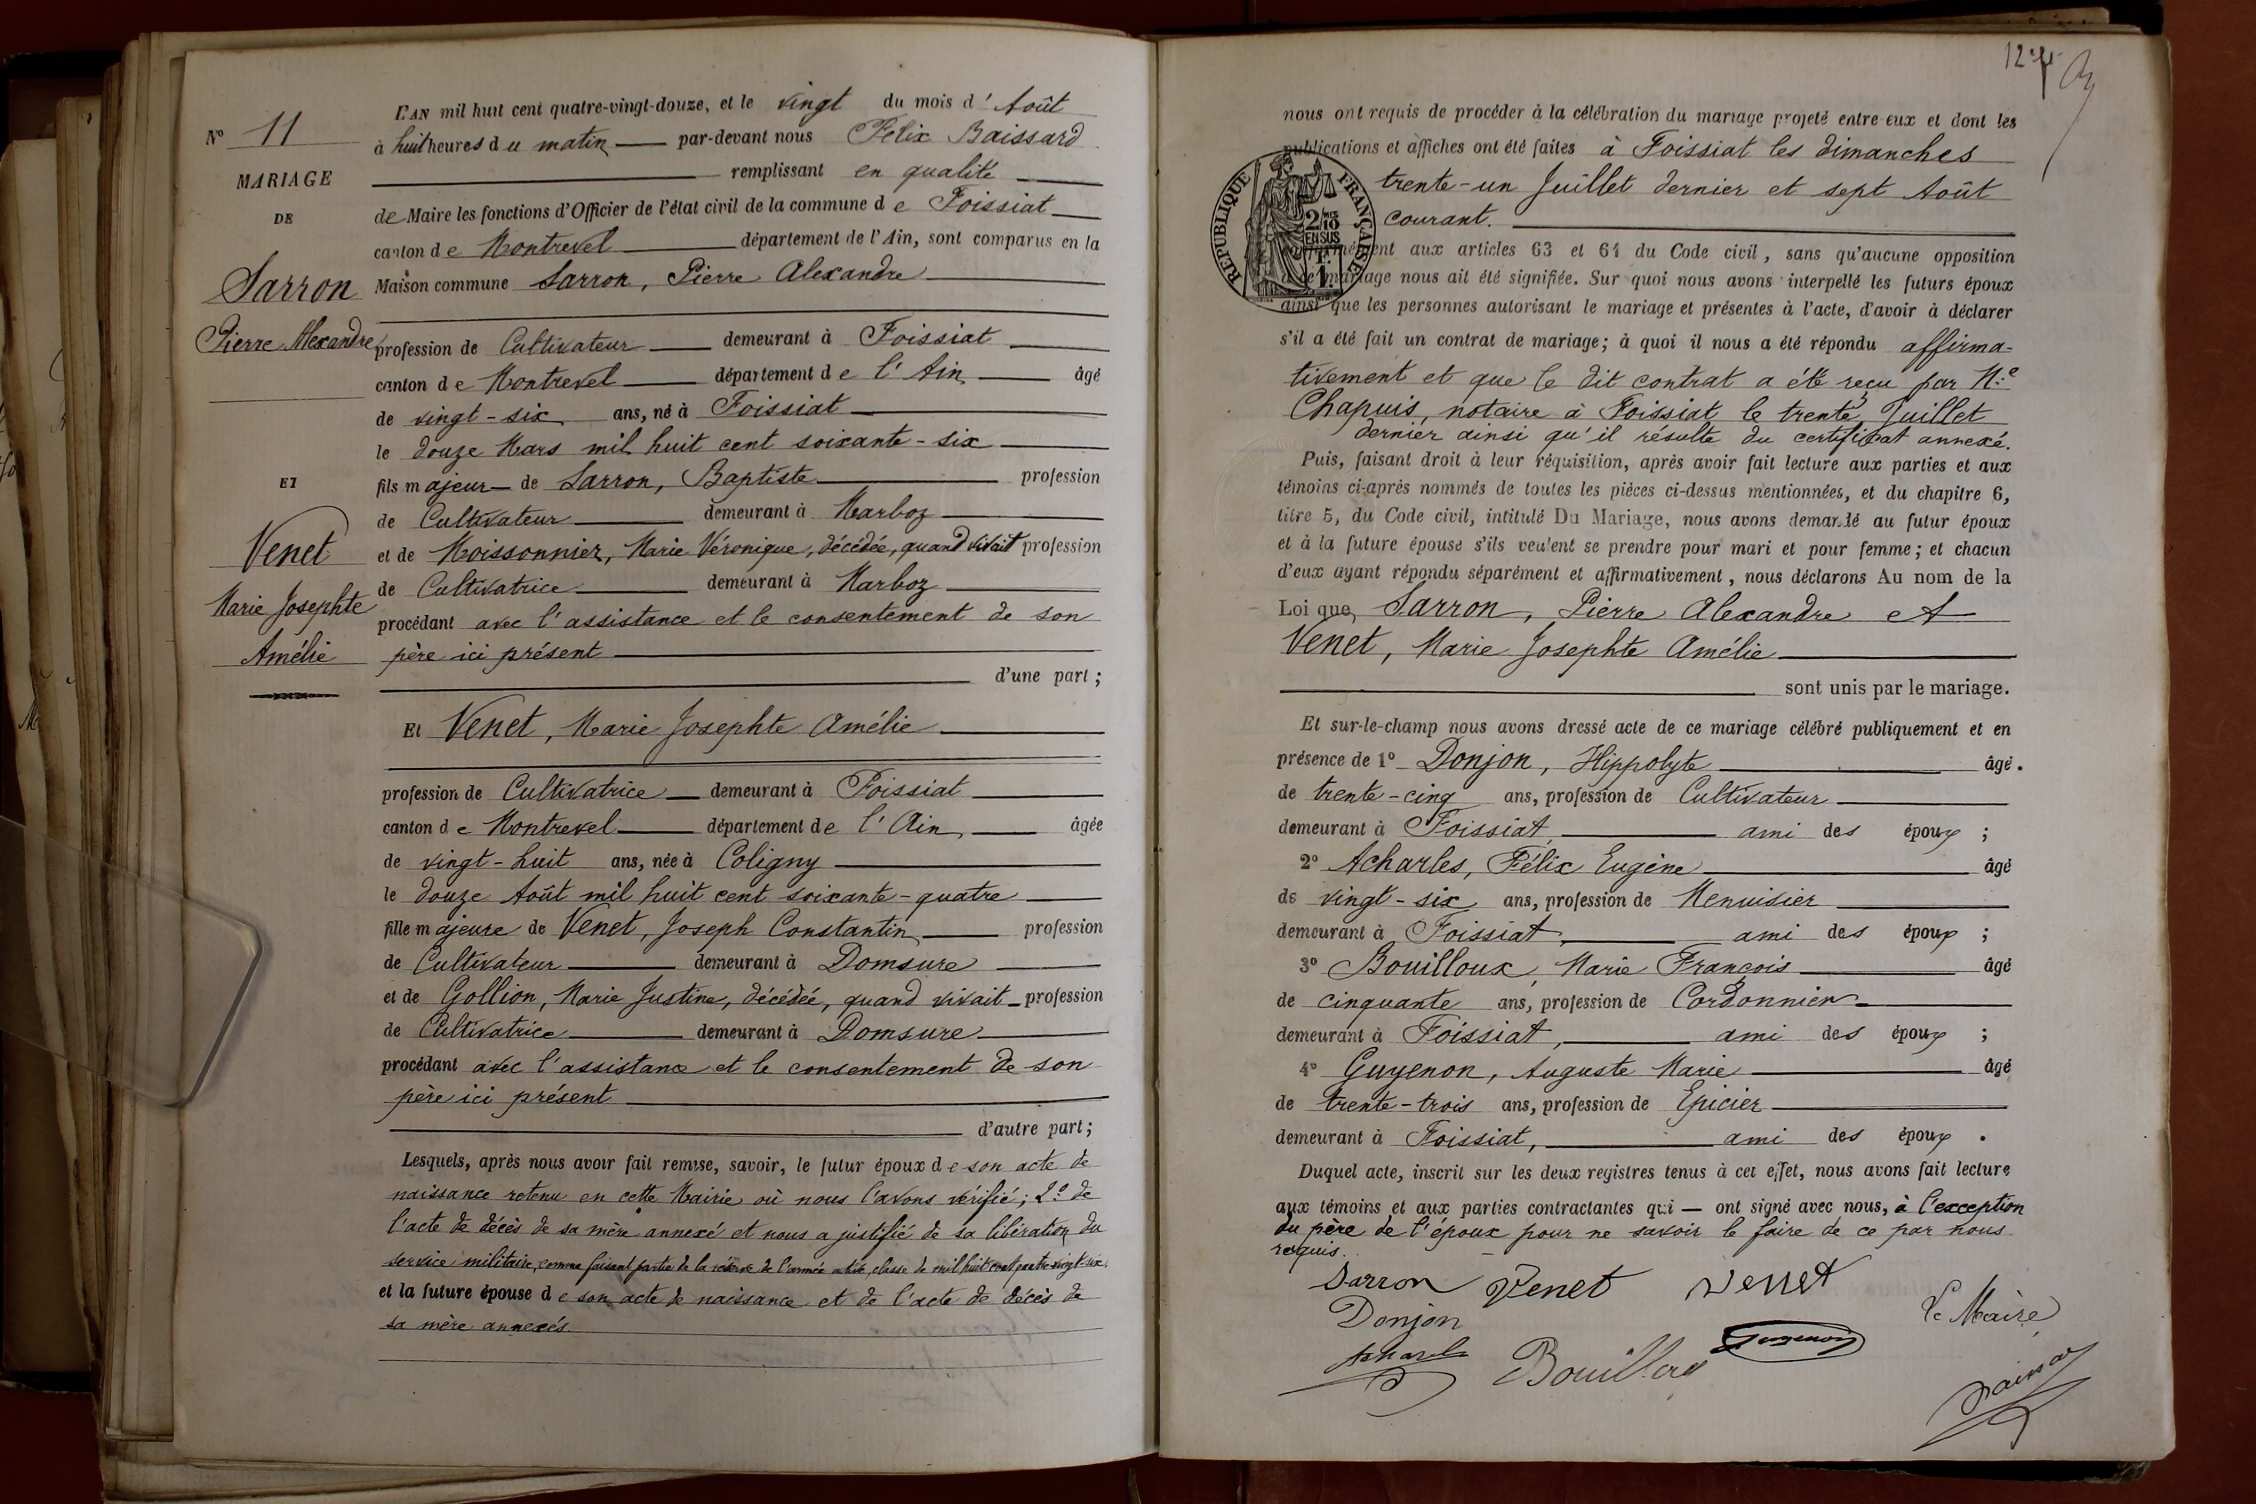 N° 11
MARIAGE
DE
Sarron
Pierre Alexandre
ET
Venet
Marie Josephte
Amélie
L'AN mil huit cent quatre-vingt-douze, et le vingt du mois d' Août
à huit heures du matin par-devant nous Félix Baissard
remplissant en qualité
de Maire les fonctions d'Officier de l'état civil de la commune de Foissiat
canton de Montrevel département de l'Ain, sont comparus en la
Maison commune Sarron, Pierre Alexandre
profession de Cultivateur demeurant à Foissiat
canton de Montrevel département de l'Ain âgé
de vingt-six ans, né à Foissiat
le douze Mars mil huit cent soixante-six
fils majeur de Sarron, Baptiste profession
de Cultivateur demeurant à Marboz
et de Moissonnier, Marie Véronique, décédée, quand vivait profession
de Cultivatrice demeurant à Marboz
procédant avec l'assistance et le consentement de son
père ici présent
d'une part;
Et Venet, Marie Josephte Amélie
profession de Cultivatrice demeurant à Foissiat
canton de Montrevel département de l'Ain, âgée
de vingt-huit ans, née à Coligny
le douze Août mil huit cent soixante-quatre
fille majeure de Venet, Joseph Constantin, profession
de Cultivateur demeurant à Domsure
et de Gollion, Marie Justine, décédée, quand vivait profession
de Cultivatrice demeurant à Domsure
procédant avec l'assistance et le consentement de son
père ici présent
d'autre part;
Lesquels, après nous avoir fait remise, savoir, le futur époux de son acte de
naissance retenu en cette Mairie où nous l'avons vérifié; 2° de
l'acte de décès de sa mère annexé et nous a justifié de sa libération du
service militaire, comme faisant partie de la réserve de l'armée active, classe de mil huit cent quatre-vingt-six.
et la future épouse de son acte de naissance et de l'acte de décès de
sa mère annexés.
12
nous ont requis de procéder à la célébration du mariage projeté entre eux et dont les
publications et affiches ont été faites à Foissiat les dimanches
trente-un Juillet dernier et sept Août
courant.
RÉPUBLIQUE FRANÇAISE
2/10
EN SUS
1F.
conformément aux articles 63 et 64 du Code civil, sans qu'aucune opposition
mariage nous ait été signifiée. Sur quoi nous avons interpellé les futurs époux
ainsi que les personnes autorisant le mariage et présentes à l'acte, d'avoir à déclarer
s'il a été fait un contrat de mariage; à quoi il nous a été répondu affirma-
tivement et que le dit contrat a été reçu par M.e
Chapuis, notaire à Foissiat le trente Juillet
dernier ainsi qu'il résulte du certificat annexé.
Puis, faisant droit à leur réquisition, après avoir fait lecture aux parties et aux
témoins ci-après nommés de toutes les pièces ci-dessus mentionnées, et du chapitre 6,
titre 5, du Code civil, intitulé Du Mariage, nous avons demandé au futur époux
et à la future épouse s'ils veulent se prendre pour mari et pour femme; et chacun
d'eux ayant répondu séparément et affirmativement, nous déclarons Au nom de la
Loi que Sarron, Pierre Alexandre et
Venet, Marie Josephte Amélie
sont unis par le mariage.
Et sur-le-champ nous avons dressé acte de ce mariage célébré publiquement et en
présence de 1° Donjon, Hippolyte âgé
de trente-cinq ans, profession de Cultivateur
demeurant à Foissiat ami des époux;
2° Acharles, Félix Eugène âgé
de vingt-six ans, profession de Menuisier
demeurant à Foissiat, ami des époux;
3° Bouilloux, Marie François âgé
de cinquante ans, profession de Cordonnier
demeurant à Foissiat, ami des époux;
4° Guyenon, Auguste Marie âgé
de trente-trois ans, profession de Epicier
demeurant à Foissiat, ami des époux.
Duquel acte, inscrit sur les deux registres tenus à cet effet, nous avons fait lecture
aux témoins et aux parties contractantes qui — ont signé avec nous, à l'exception
du père de l'époux pour ne savoir le faire de ce par nous
requis.
Sarron Venet Venet
Donjon Le Maire
Acharles Bouilloux Guyenon
Baissard